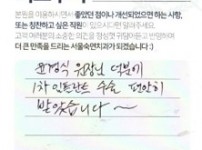 본원을 이용하시면서 좋았던 점이나 개선되었으면 하는 사항,
또는 칭찬하고 싶은 직원이 있으시다면 알려주세요.
고객 여러분의 소중한 의견을 겸허히 반영하여
더 큰 만족을 드리는 서울숲면치과가 되겠습니다 :)
윤정식 원장님 덕분에
1차 임플란트 수술 편안히
받았습니다 ~